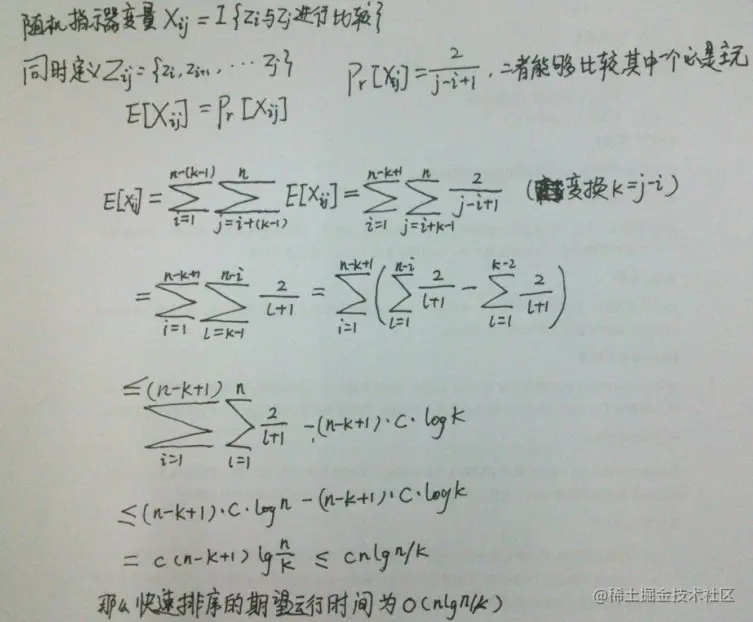 随机指示器变量 Xij = I {Zi与Zj进行比较}
同时定义Zij = {Zi, Zi+1, ⋯ Zj} Pr[Xij] = 2/(j-i+1), 二者能够比较其中一个必是主元
E[Xij] = Pr[Xij]
E[Xij] = ∑_{i=1}^{n-(k-1)} ∑_{j=i+(k-1)}^{n} E[Xij] = ∑_{i=1}^{n-k+1} ∑_{j=i+k-1}^{n} 2/(j-i+1) (变换k=j-i)
= ∑_{i=1}^{n-k+1} ∑_{l=k-1}^{n-i} 2/(l+1) = ∑_{i=1}^{n-k+1} (∑_{l=1}^{n-i} 2/(l+1) - ∑_{l=1}^{k-2} 2/(l+1))
≤ ∑_{i=1}^{(n-k+1)} ∑_{l=1}^{n} 2/(l+1) - (n-k+1)·C·logk
≤ (n-k+1)·C·logn - (n-k+1)·C·logk
= c(n-k+1) lg n/k ≤ cnlgn/k
那么快速排序的期望运行时间为O(nlgn/k)
@稀土掘金技术社区